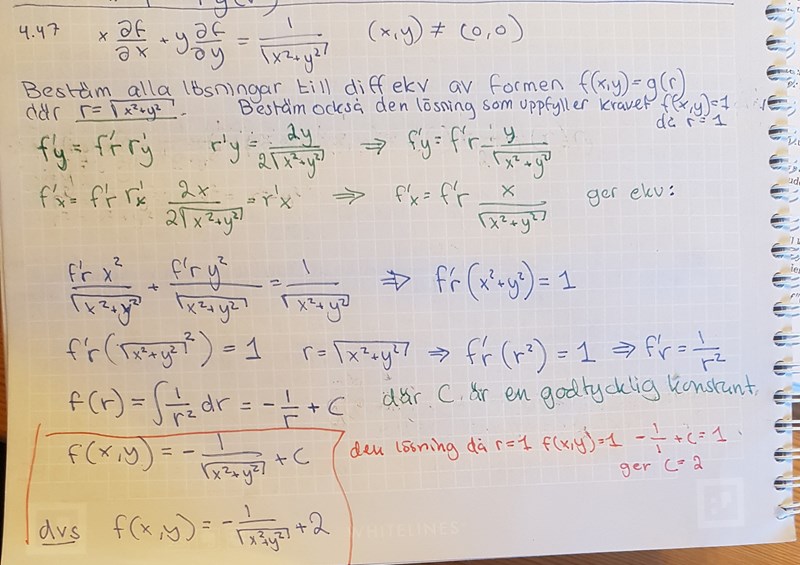 4.47 x ∂f/∂x + y ∂f/∂y = 1/√(x²+y²) (x,y) ≠ (0,0)
Bestäm alla lösningar till diffekv av formen f(x,y)=g(r)
där r=√(x²+y²). Bestäm också den lösning som uppfyller kravet f(x,y)=1
då r=1
f'y = f'r r'y r'y = 2y/(2√(x²+y²)) ⇒ f'y = f'r y/√(x²+y²)
f'x = f'r r'x 2x/(2√(x²+y²)) = r'x ⇒ f'x = f'r x/√(x²+y²) ger ekv:
f'r x²/√(x²+y²) + f'r y²/√(x²+y²) = 1/√(x²+y²) ⇒ f'r (x²+y²) = 1
f'r (√(x²+y²)²) = 1 r=√(x²+y²) ⇒ f'r (r²) = 1 ⇒ f'r = 1/r²
f(r) = ∫ 1/r² dr = -1/r + C där C är en godtycklig konstant.
f(x,y) = -1/√(x²+y²) + C den lösning då r=1 f(x,y)=1 -1/1 + C = 1
ger C=2
dvs f(x,y) = -1/√(x²+y²) + 2
WHITELINES